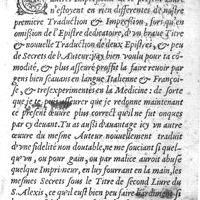 n'estoyent en rien differentes de nostre
premiere Traduction & Impreßion, fors qu'en
omißion de l'Epistre dedicatoire, d'un braue Titre
& nouuelle Traduction de deux Epistres, & peu
de Secrets de l'Auteur: i'ay bien voulu pour ta com-
modité, & plus asseuré proffit la faire reuoir par
gens bien sçauans en langue Italienne & Françoi-
se, & tresexperimentés en la Medicine: de sorte
que ie te puis asseurer que ie redonne maintenant
ce present œuure plus correct qu'il n'a esté onques
par cy deuant. Tu as außi d'auantage icy vn autre
œuure du mesme Auteur nouuellement traduit
d'vne fidelité non doutable, ne me souciant si quel-
qu'vn, ou pour gain, ou par malice auroit abusé
quelque Imprimeur, en luy fourrant en main, les
mesmes Secrets sous le Titre de second Liure du
S. Alexis, ce qu'il eust bien peu faire hardiment si